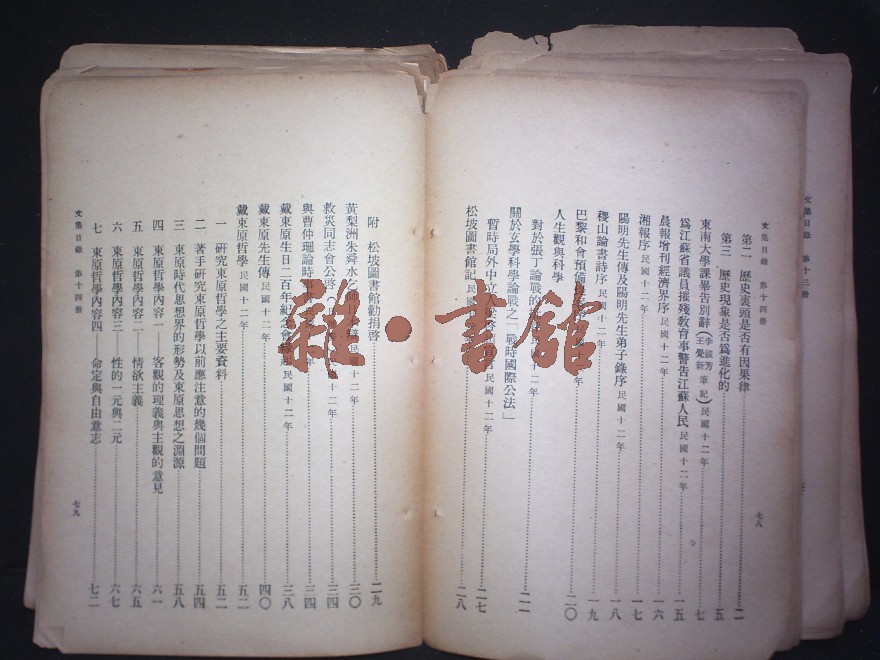 文集目錄 第十三册
文集目錄 第十四册
七八
第二 歷史裏頭是否有因果律 二
第三 歷史現象是否爲進化的 五
東南大學課畢告別辭(李競芳 王覺新 筆記)民國十二年 七
爲江蘇省議員摧殘教育事警告江蘇人民 民國十二年 一五
晨報增刊經濟界序 民國十二年 一六
湘報序 民國十二年 一七
陽明先生傳及陽明先生弟子錄序 民國十二年 一八
稷山論書詩序 民國十二年 一九
巴黎和會預備 十二年 二〇
人生觀與科學
對於張丁論戰的
關於玄學科學論戰之「戰時國際公法」 二一
暫時局外中立 民國十二年 二七
松坡圖書館記 民國 二八
附 松坡圖書館勸捐啓 二九
黃梨洲朱舜水乞 民國十二年 三〇
救災同志會公啓 十二年 三四
與曹仲珊論時事 年 三四
戴東原生日二百年紀念會 民國十二年 三八
戴東原先生傳 民國十二年 四〇
戴東原哲學 民國十二年 五二
一 研究東原哲學之主要資料 五二
二 著手研究東原哲學以前應注意的幾個問題 五四
三 東原時代思想界的形勢及東原思想之淵源 五八
四 東原哲學內容一 客觀的理義與主觀的意見 六一
五 東原哲學內容二 情欲主義 六五
六 東原哲學內容三 性的一元與二元 六七
七 東原哲學內容四 命定與自由意志 七二
文集目錄 第十四册
七九
雜·書館